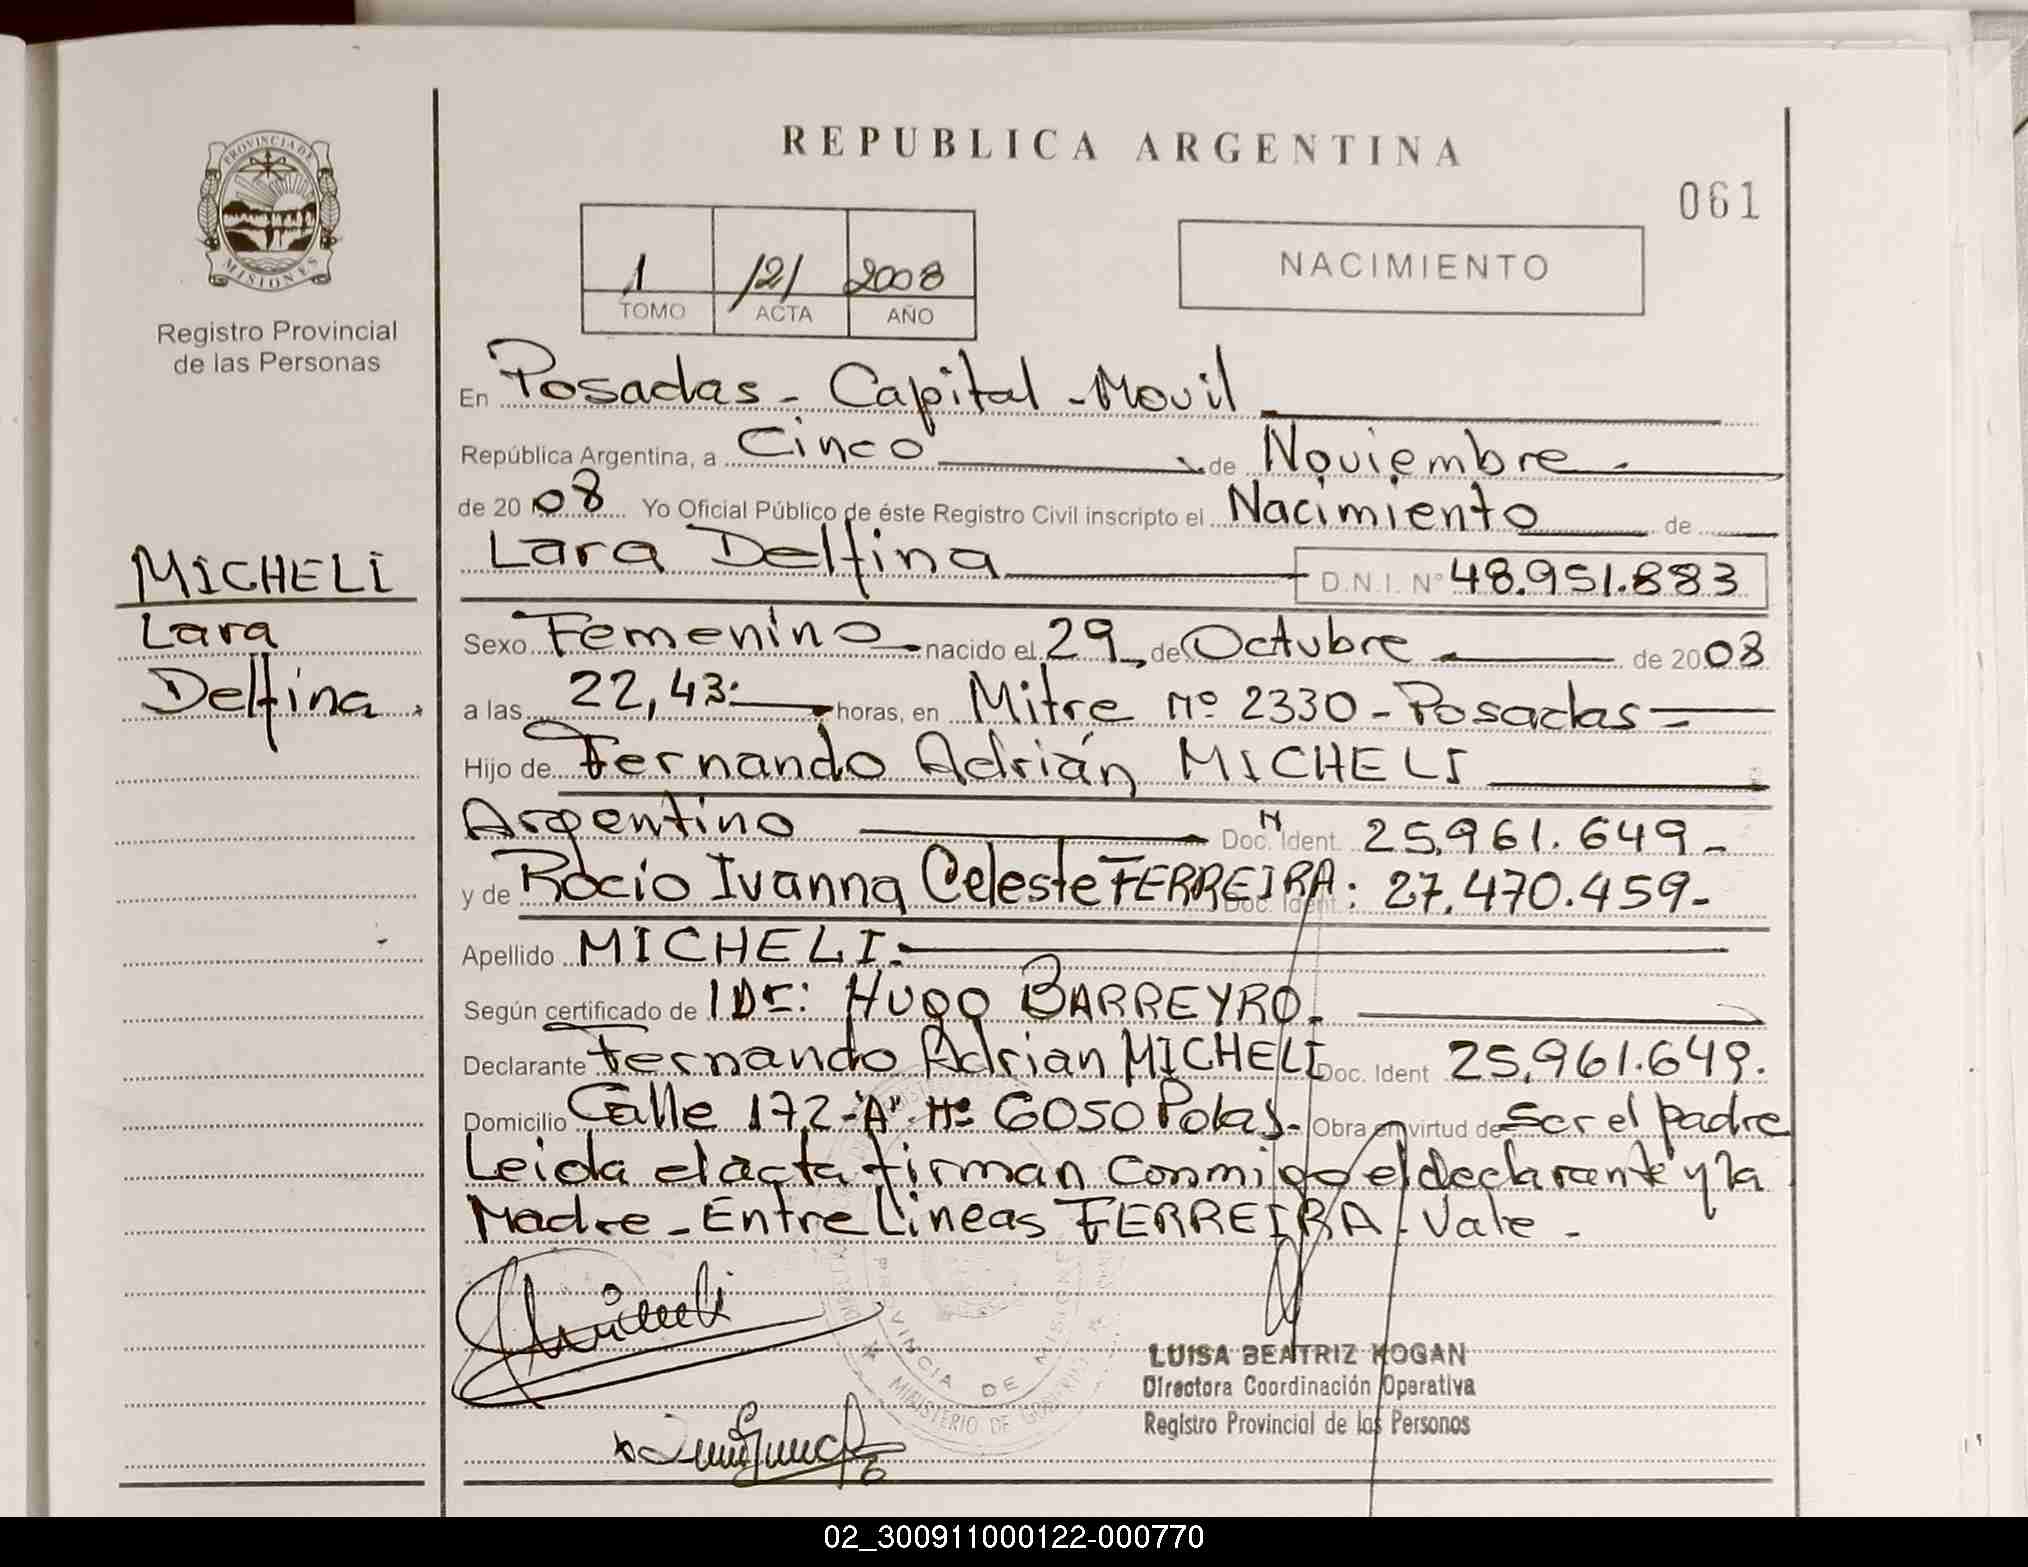 REPUBLICA ARGENTINA
061
PROVINCIA DE
MISIONES
Registro Provincial
de las Personas
1 121 2008
TOMO ACTA AÑO
NACIMIENTO
En Posadas - Capital - Movil
República Argentina, a Cinco de Noviembre.
de 20 08 Yo Oficial Público de éste Registro Civil inscripto el Nacimiento de
Lara Delfina D.N.I. Nº 48.951.883
MICHELI
Lara
Delfina.
Sexo Femenino nacido el 29 de Octubre de 2008
a las 22,43: horas, en Mitre Nº 2330 - Posadas -
Hijo de Fernando Adrián MICHELI
Argentino Doc. N Ident. 25.961.649 -
y de Rocio Ivanna Celeste FERREIRA Doc. Ident.: 27.470.459 -
Apellido MICHELI.
Según certificado de Hugo BARREYRO.
Declarante Fernando Adrian MICHELI Doc. Ident 25.961.649.
Domicilio Calle 172 "A" Nº 6050 Obra en virtud de Ser el padre
Leida el acta firman conmigo el declarante y la
Madre - Entre Lineas FERREIRA - Vale -
PROVINCIA DE MISIONES
MINISTERIO DE GOBIERNO
LUISA BEATRIZ KOGAN
Directora Coordinación Operativa
Registro Provincial de las Personas
02_300911000122-000770